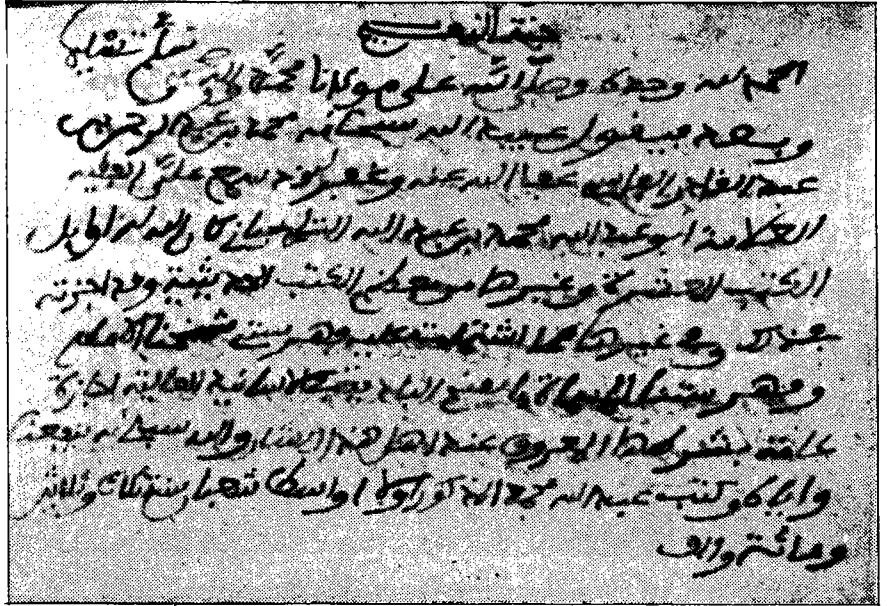 تسليما
الحمد لله وحده وصلى الله على مولانا محمد وآله
وبعد فيقول عبيد الله سبحانه محمد بن عبد الرحمن بن
عبد القادر الفاسي عفا الله عنه وغفر له قد سمع علي الفقيه
العلامة أبو عبد الله محمد بن عبد الله كان الله له اوايل
الكتب العشرة وغيرها من معظم الكتب الحديثية وقد اجزته
بذلك وبغيرها مما اشتملت عليه فهرسة شيخنا الامام
وفهرستنا المسماة بالمنح البادية في الاسانيد العالية اجازة
عامة بشرطها المعروف عند اهل هذا الشان والله سبحانه ينفعنا
واياه وكتب عبيد الله محمد المذكور اولا اواسط شعبان سنة ثلاث وثلاثين
ومائة والف